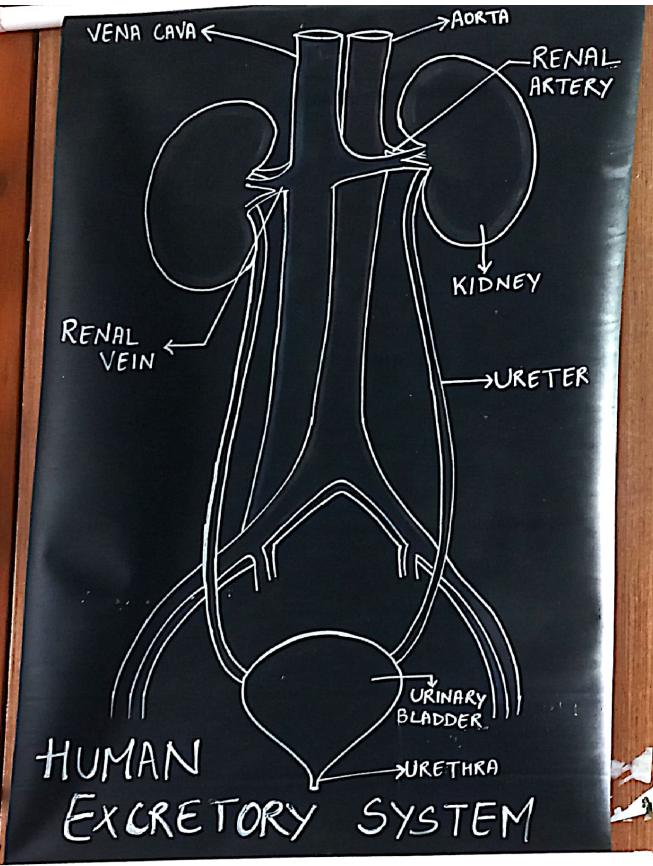 VENA CAVA
AORTA
RENAL
ARTERY
KIDNEY
RENAL
VEIN
URETER
URINARY
BLADDER
URETHRA
HUMAN
EXCRETORY SYSTEM